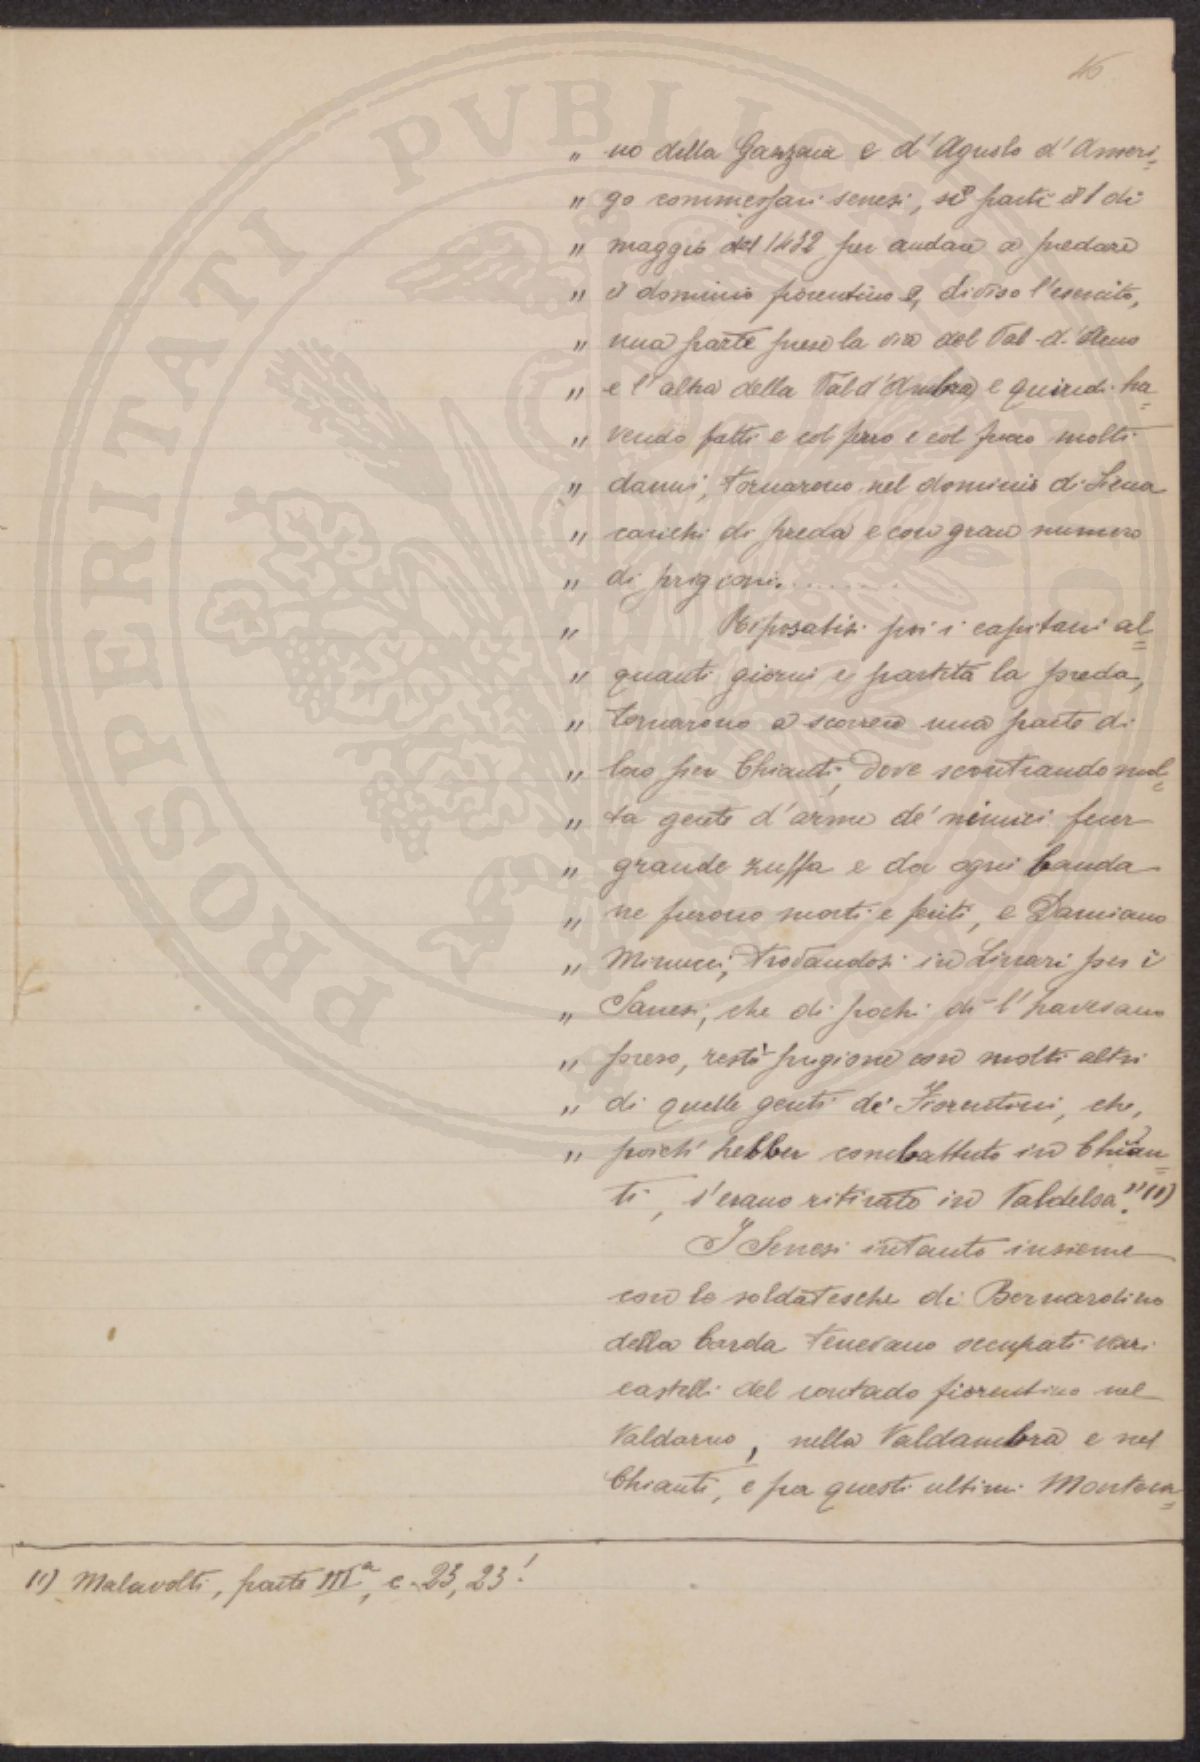 46
" no della Gazzaia e d'Agnolo d'Ameri=
" go commessari senesi, si partì il 1 di
" maggio del 1432 per andare a predare
" il dominio fiorentino e, diviso l'esercito,
" una parte prese la via del Val-d'Arno
" e l'altra della Vald'Ambra, e quindi ha=
" vendo fatti e col ferro e col fuoco molti
" danni, tornarono nel dominio di Siena
" carichi di preda e con gran numero
" di prigioni.........
" Riposatisi poi i capitani al=
" quanti giorni e partita la preda,
" tornarono a scorrere una parte di
" loro per Chianti, dove scontrando mol=
" ta gente d'arme de' nimici fecer
" grande zuffa e da ogni banda
" ne furono morti e feriti, e Damiano
" Minucci, trovandosi in Linari per i
" Sanesi, che di pochi dì l'havevano
" preso, restò prigione con molti altri
" di quelle genti de' Fiorentini, che,
" poich' hebber combattuto in Chian=
ti, s'erano ritirate in Valdelsa." (1)
I Senesi intanto insieme
con le soldatesche di Bernardino
della Carda tenevano occupati vari
castelli del contado fiorentino nel
Valdarno, nella Valdambra e nel
Chianti, e fra questi ultimi Montera=
(1) Malavolti, parte IIIa, c. 23, 23'.
PROSPERITATI PVBLICAE